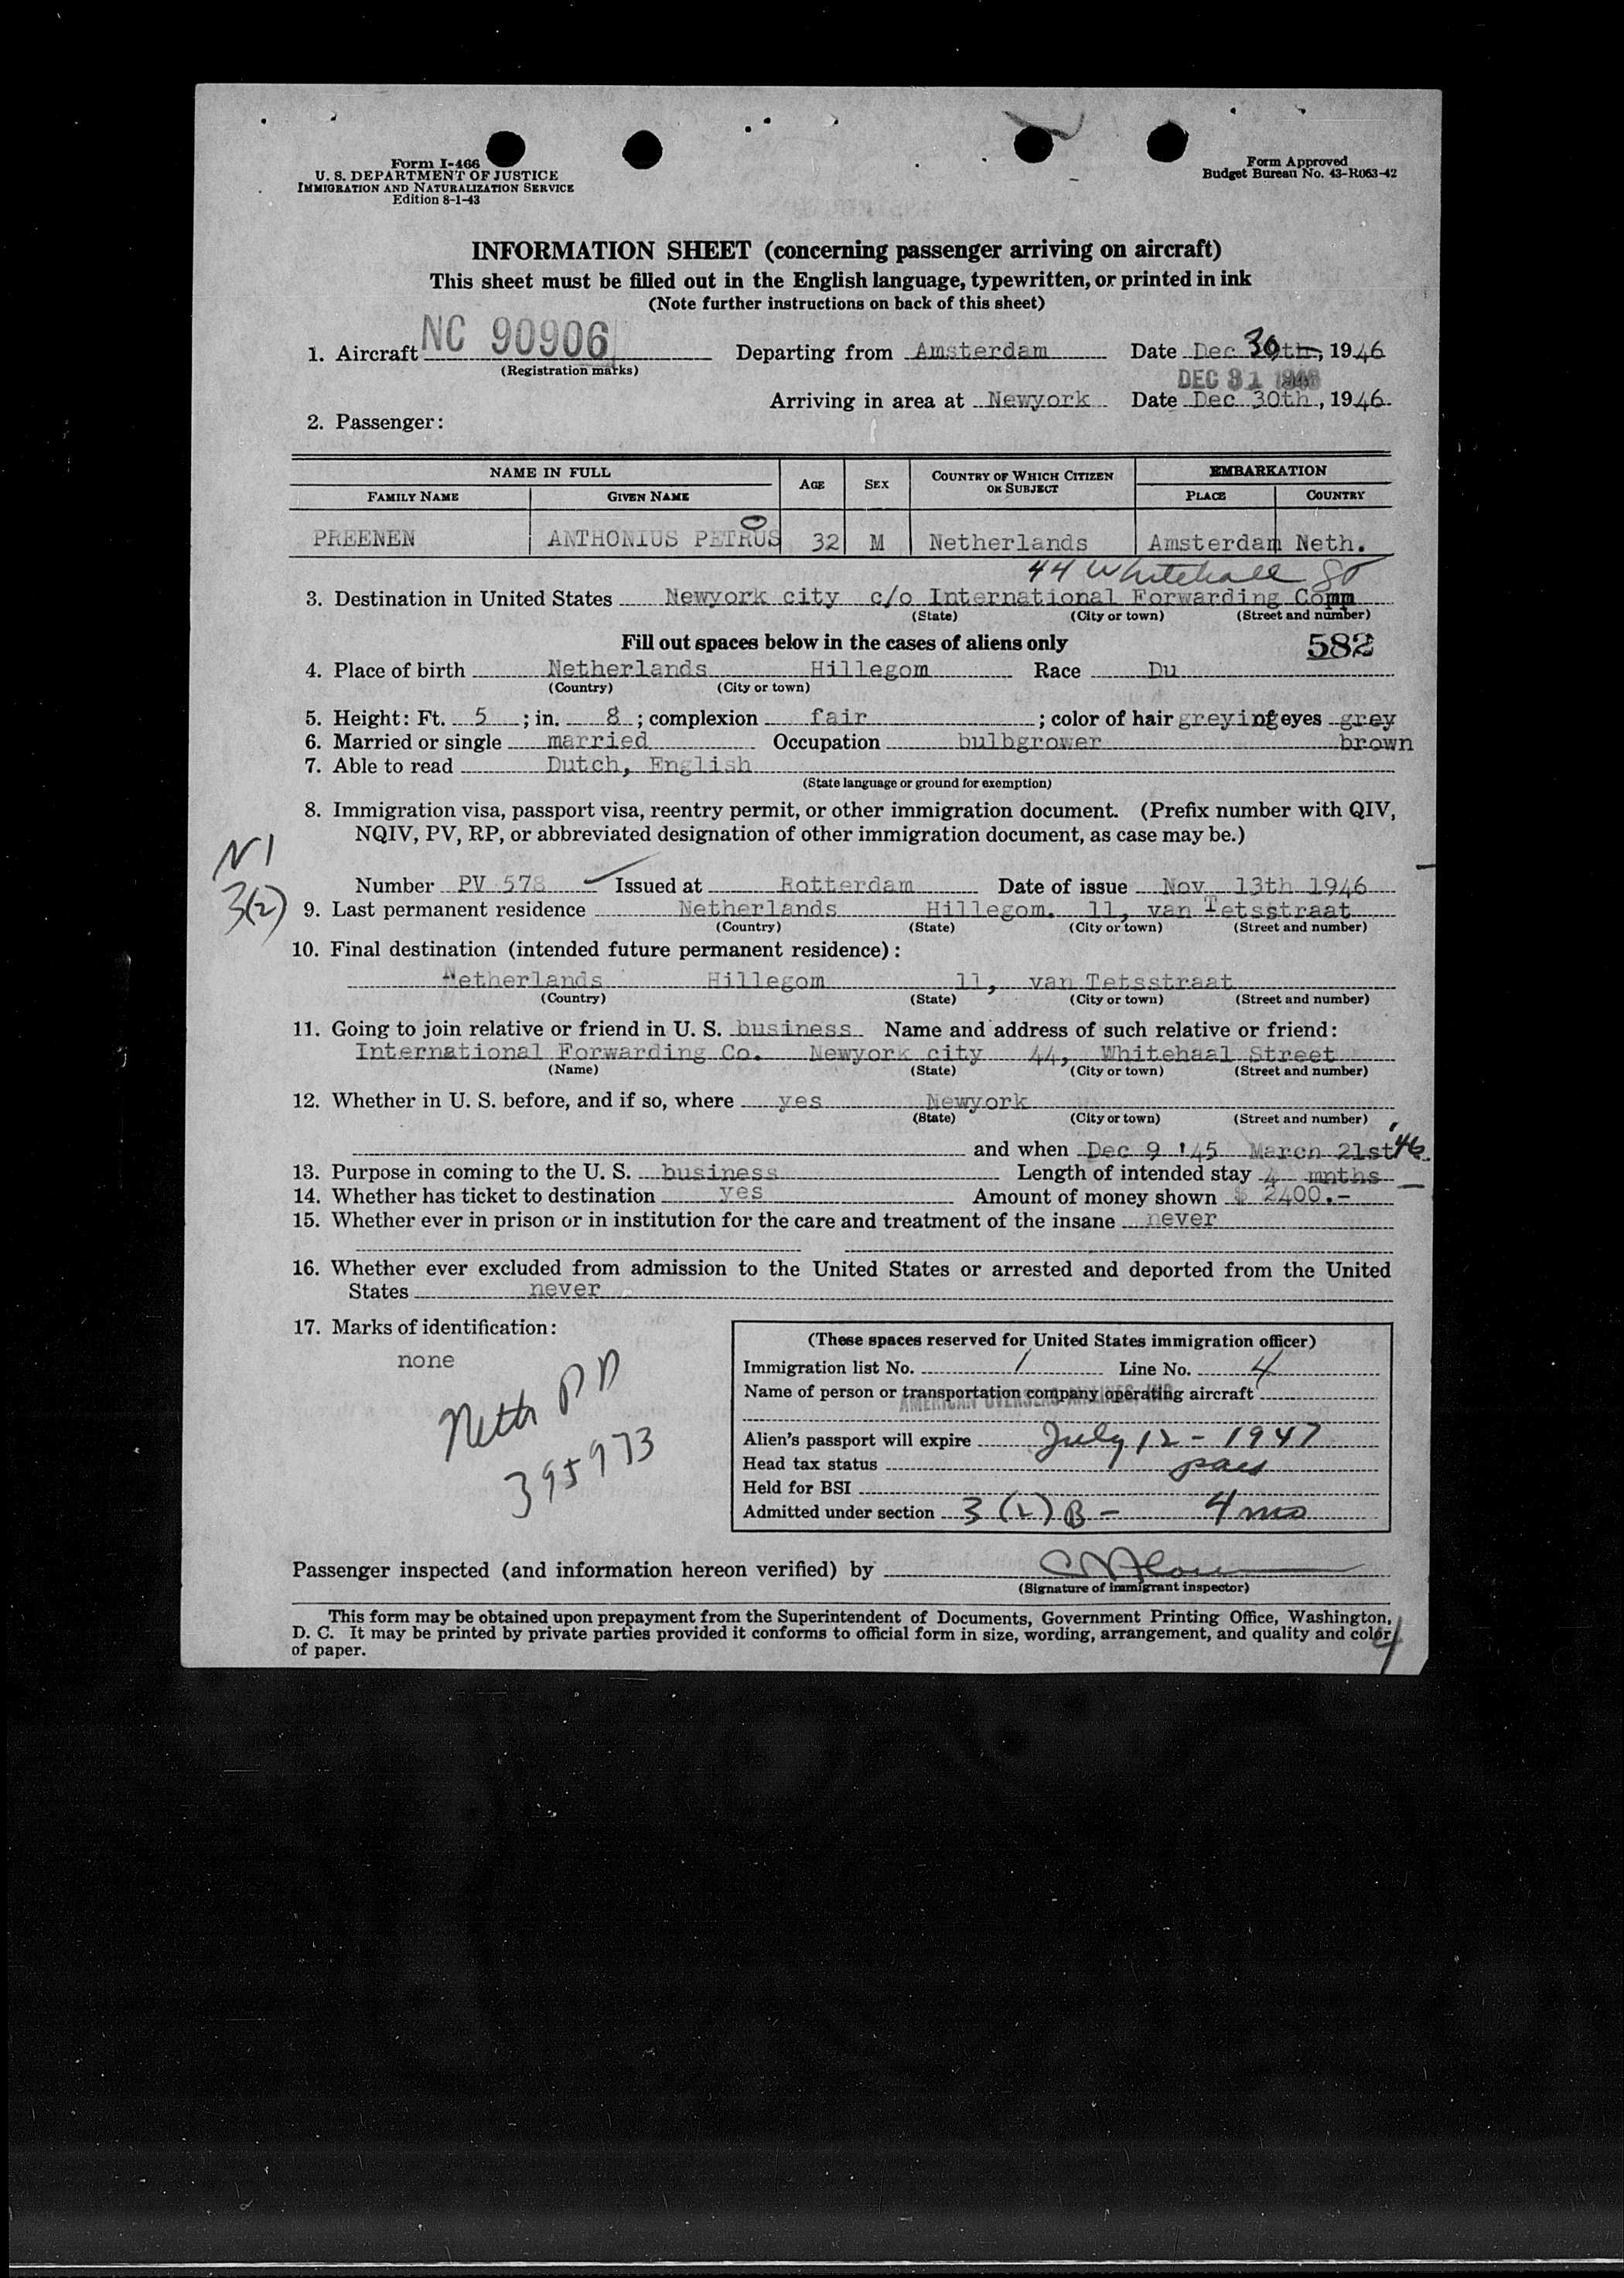 Form I-466
U. S. DEPARTMENT OF JUSTICE
IMMIGRATION AND NATURALIZATION SERVICE
Edition 8-1-43
Form Approved
Budget Bureau No. 43-R063-42
INFORMATION SHEET (concerning passenger arriving on aircraft)
This sheet must be filled out in the English language, typewritten, or printed in ink
(Note further instructions on back of this sheet)
1. Aircraft NC 90906 Departing from Amsterdam Date Dec 30th, 1946
(Registration marks)
DEC 31 1946
Arriving in area at Newyork Date Dec 30th, 1946
2. Passenger:
NAME IN FULL AGE SEX COUNTRY OF WHICH CITIZEN OR SUBJECT EMBARKATION
FAMILY NAME GIVEN NAME PLACE COUNTRY
PREENEN ANTHONIUS PETRUS 32 M Netherlands Amsterdam Neth.
44 Whitehall St
3. Destination in United States Newyork city c/o International Forwarding Comp
(State) (City or town) (Street and number)
Fill out spaces below in the cases of aliens only 582
4. Place of birth Netherlands Hillegom Race Du
(Country) (City or town)
5. Height: Ft. 5; in. 8; complexion fair; color of hair greying eyes grey
6. Married or single married Occupation bulbgrower brown
7. Able to read Dutch, English
(State language or ground for exemption)
8. Immigration visa, passport visa, reentry permit, or other immigration document. (Prefix number with QIV,
NQIV, PV, RP, or abbreviated designation of other immigration document, as case may be.)
3(2)
Number PV 578 Issued at Rotterdam Date of issue Nov 13th 1946
9. Last permanent residence Netherlands Hillegom. 11, van Tetsstraat
(Country) (State) (City or town) (Street and number)
10. Final destination (intended future permanent residence):
Netherlands Hillegom 11, van Tetsstraat
(Country) (State) (City or town) (Street and number)
11. Going to join relative or friend in U. S. business Name and address of such relative or friend:
International Forwarding Co. Newyork city 44, Whitehaal Street
(Name) (State) (City or town) (Street and number)
12. Whether in U. S. before, and if so, where yes Newyork
(State) (City or town) (Street and number)
and when Dec 9 '45 March 21st '46
13. Purpose in coming to the U. S. business Length of intended stay 4 mnths
14. Whether has ticket to destination yes Amount of money shown $ 2400.-
15. Whether ever in prison or in institution for the care and treatment of the insane never
16. Whether ever excluded from admission to the United States or arrested and deported from the United
States never
17. Marks of identification:
none
Neth PP
395973
(These spaces reserved for United States immigration officer)
Immigration list No. 1 Line No. 4
Name of person or transportation company operating aircraft
AMERICAN OVERSEAS AIRLINES, INC.
Alien's passport will expire July 12 - 1947
Head tax status paid
Held for BSI
Admitted under section 3 (2) B - 4 mo
Passenger inspected (and information hereon verified) by
(Signature of immigrant inspector)
This form may be obtained upon prepayment from the Superintendent of Documents, Government Printing Office, Washington,
D. C. It may be printed by private parties provided it conforms to official form in size, wording, arrangement, and quality and color
of paper.
4